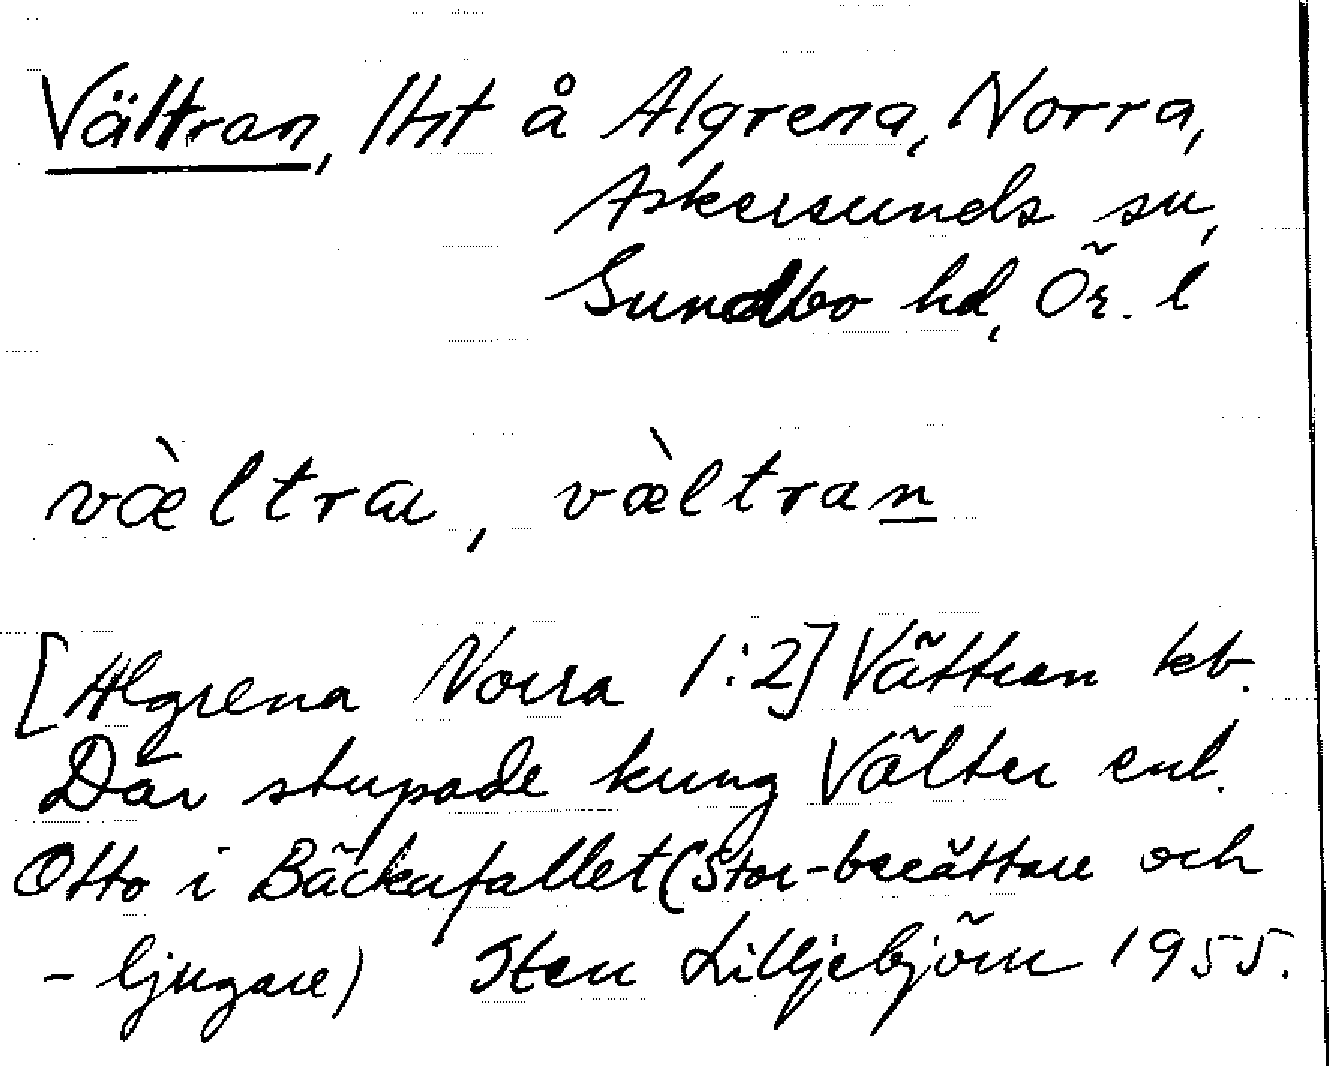 Vältran, lht å Algrena, Norra,
Askersunds sn,
Sundbo hd, Ör. l
væ̀ltra, væ̀ltran
[Algrena Norra 1:2] Vältran kb.
Där stupade kung Välter enl.
Otto i Bäckafallet (Stor-berättare och
- ljugare) Sten Lilljebjörn 1955.